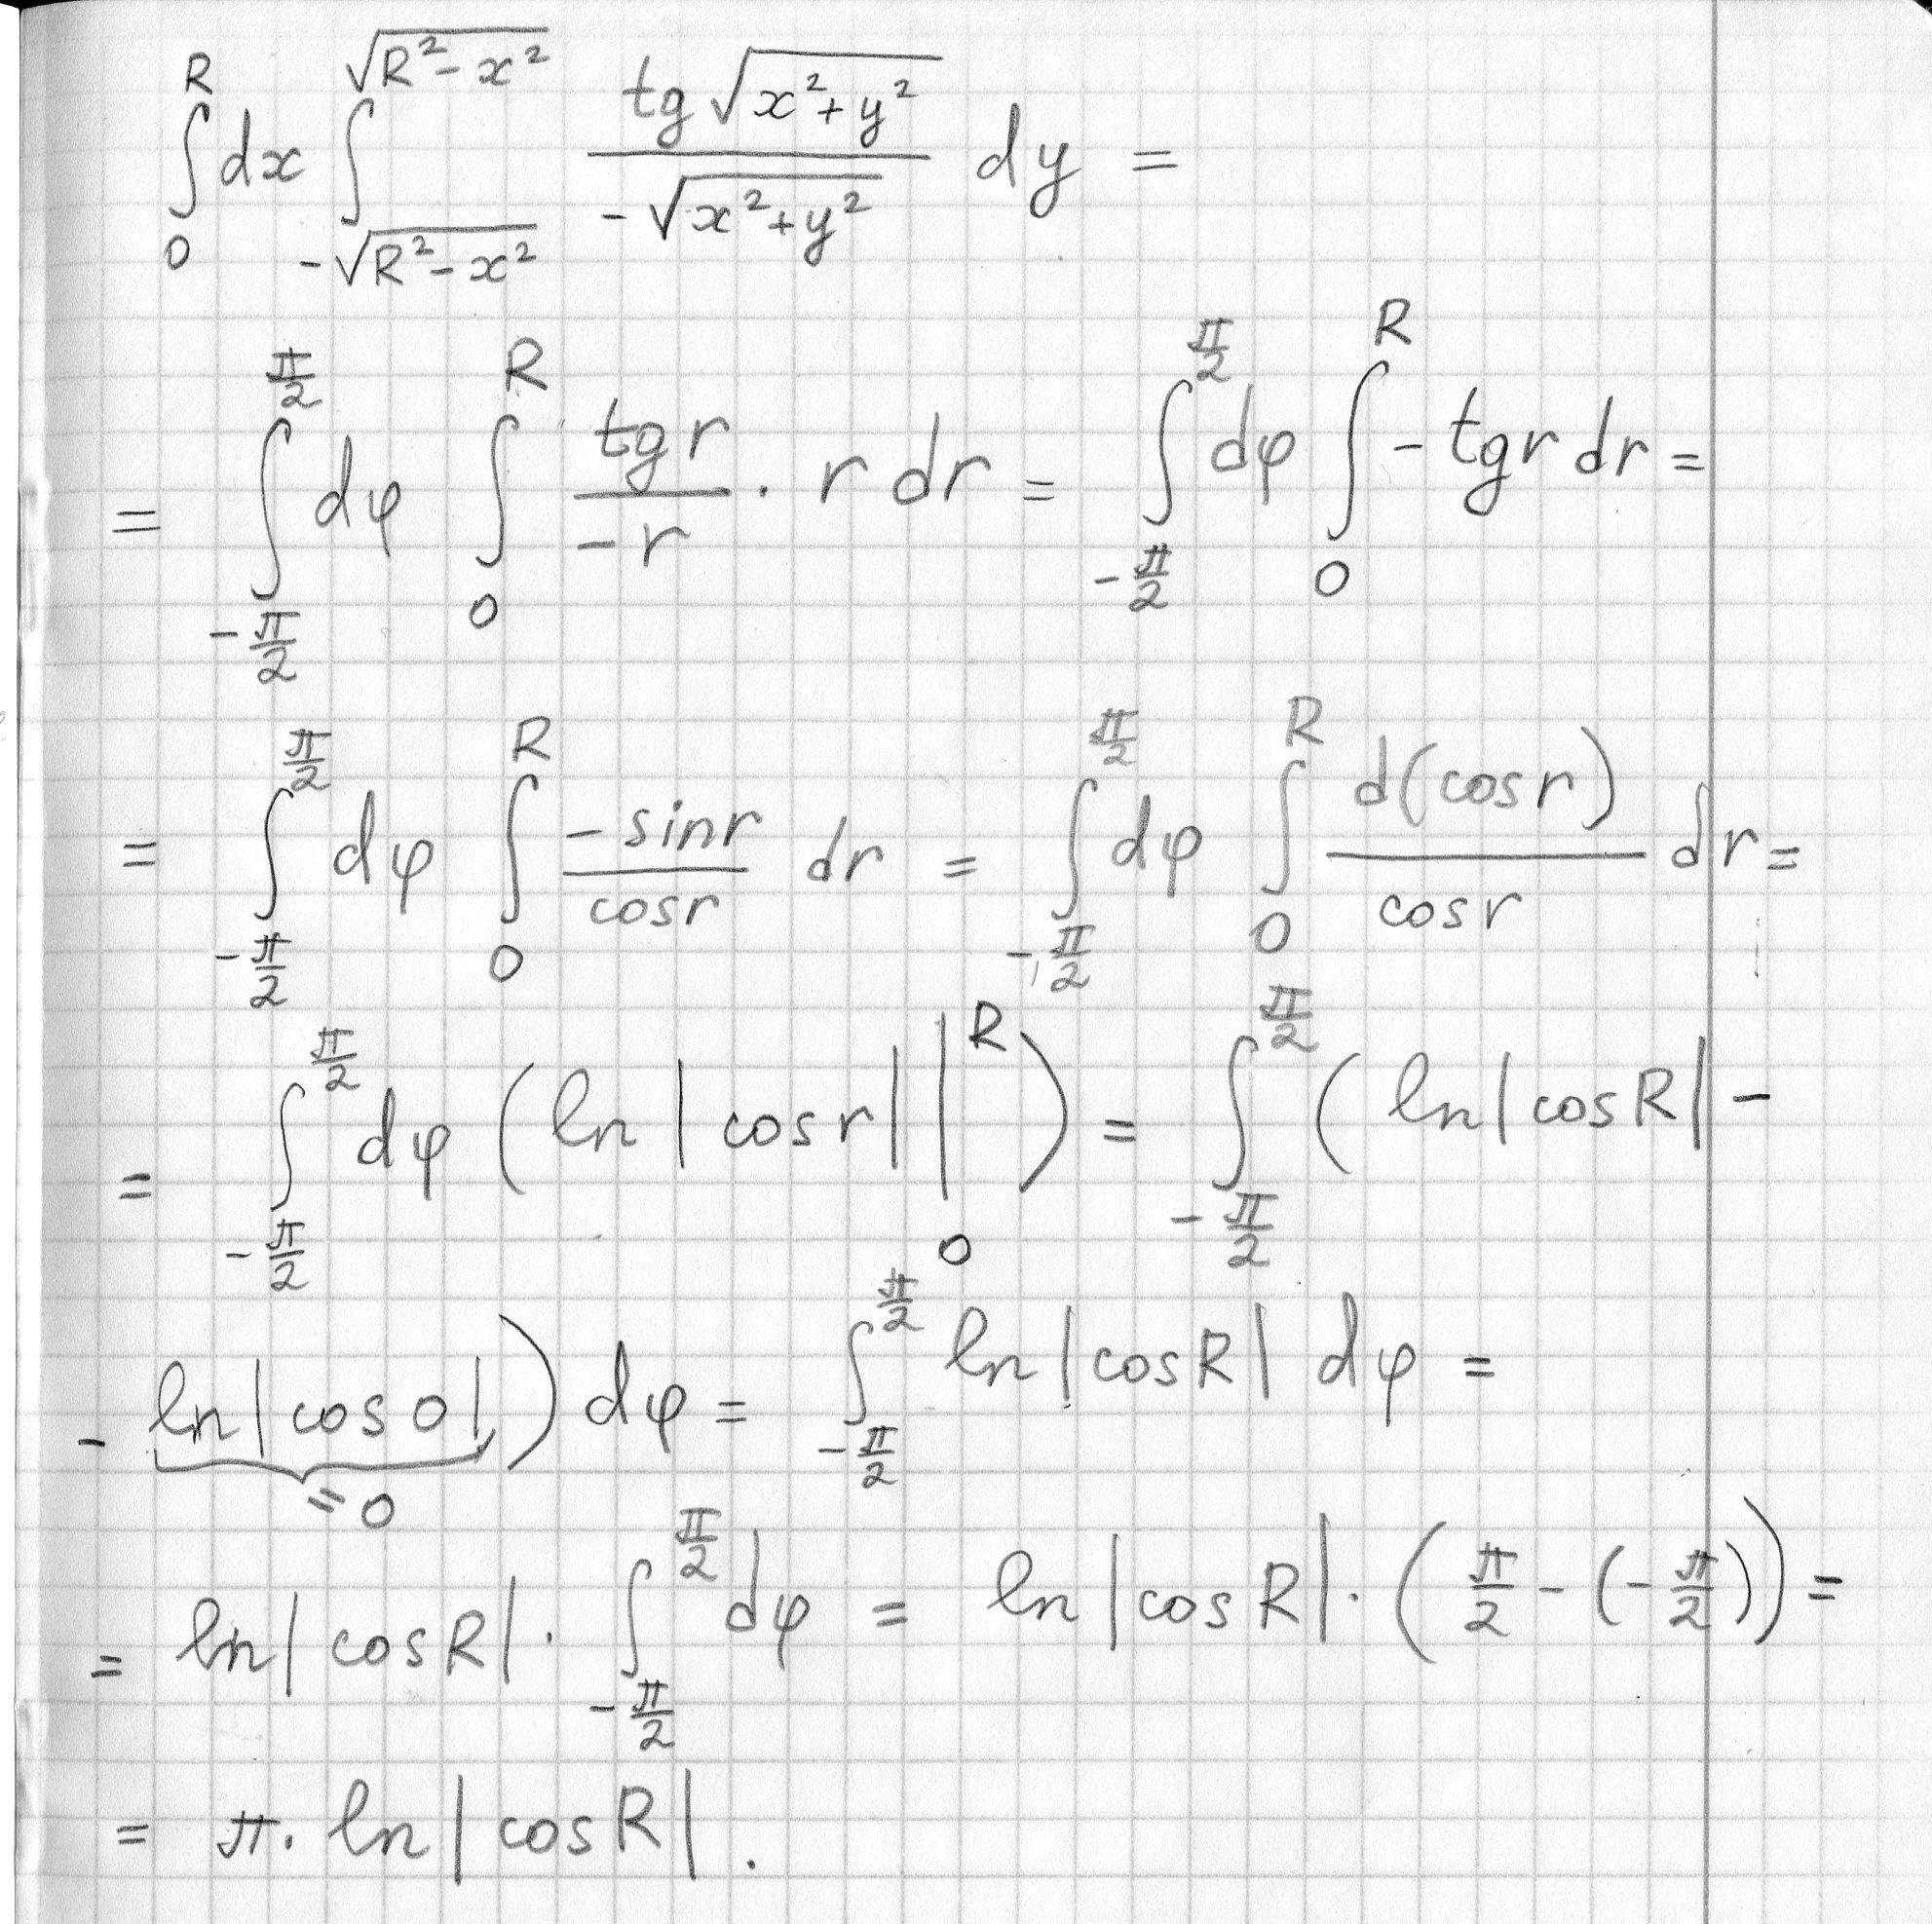 ∫_0^R dx ∫_{-√(R²-x²)}^{√(R²-x²)} (tg √(x²+y²))/(-√(x²+y²)) dy =
= ∫_{-π/2}^{π/2} dφ ∫_0^R (tg r)/(-r) · r dr = ∫_{-π/2}^{π/2} dφ ∫_0^R - tg r dr =
= ∫_{-π/2}^{π/2} dφ ∫_0^R (-sin r)/(cos r) dr = ∫_{-π/2}^{π/2} dφ ∫_0^R (d(cos r))/(cos r) dr =
= ∫_{-π/2}^{π/2} dφ (ln |cos r| |_0^R) = ∫_{-π/2}^{π/2} (ln |cos R| -
- ln |cos 0|) dφ = ∫_{-π/2}^{π/2} ln |cos R| dφ =
= 0
= ln |cos R| · ∫_{-π/2}^{π/2} dφ = ln |cos R| · (π/2 - (-π/2)) =
= π · ln |cos R| .